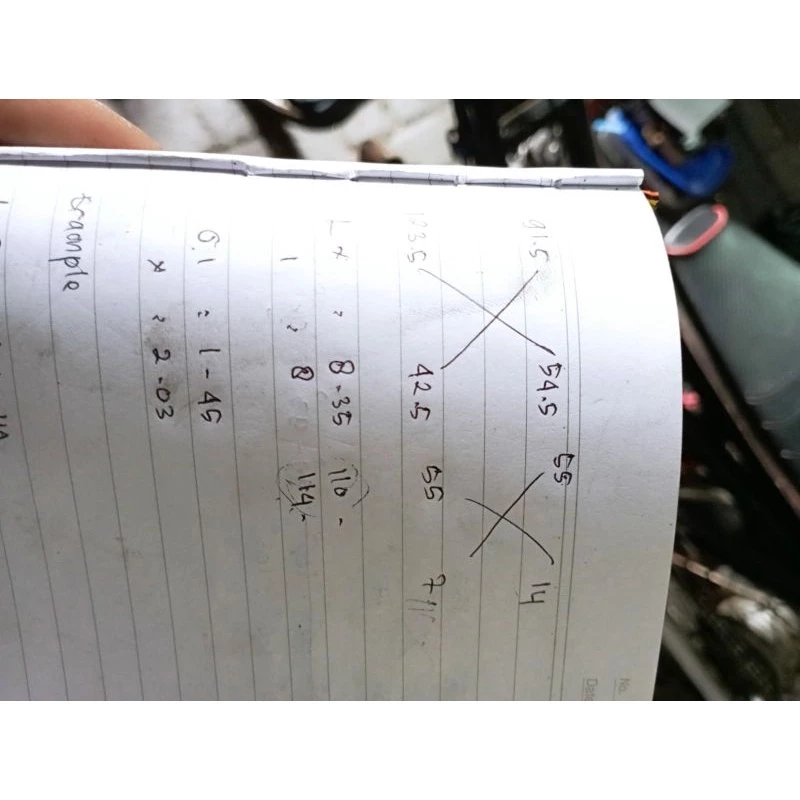 No.
Date
91.5 54.5 55 14
123.5 42.5 55 7
L x = 8.35 110 -
1 = 8 114
6.1 = 1-45
x = 2-03